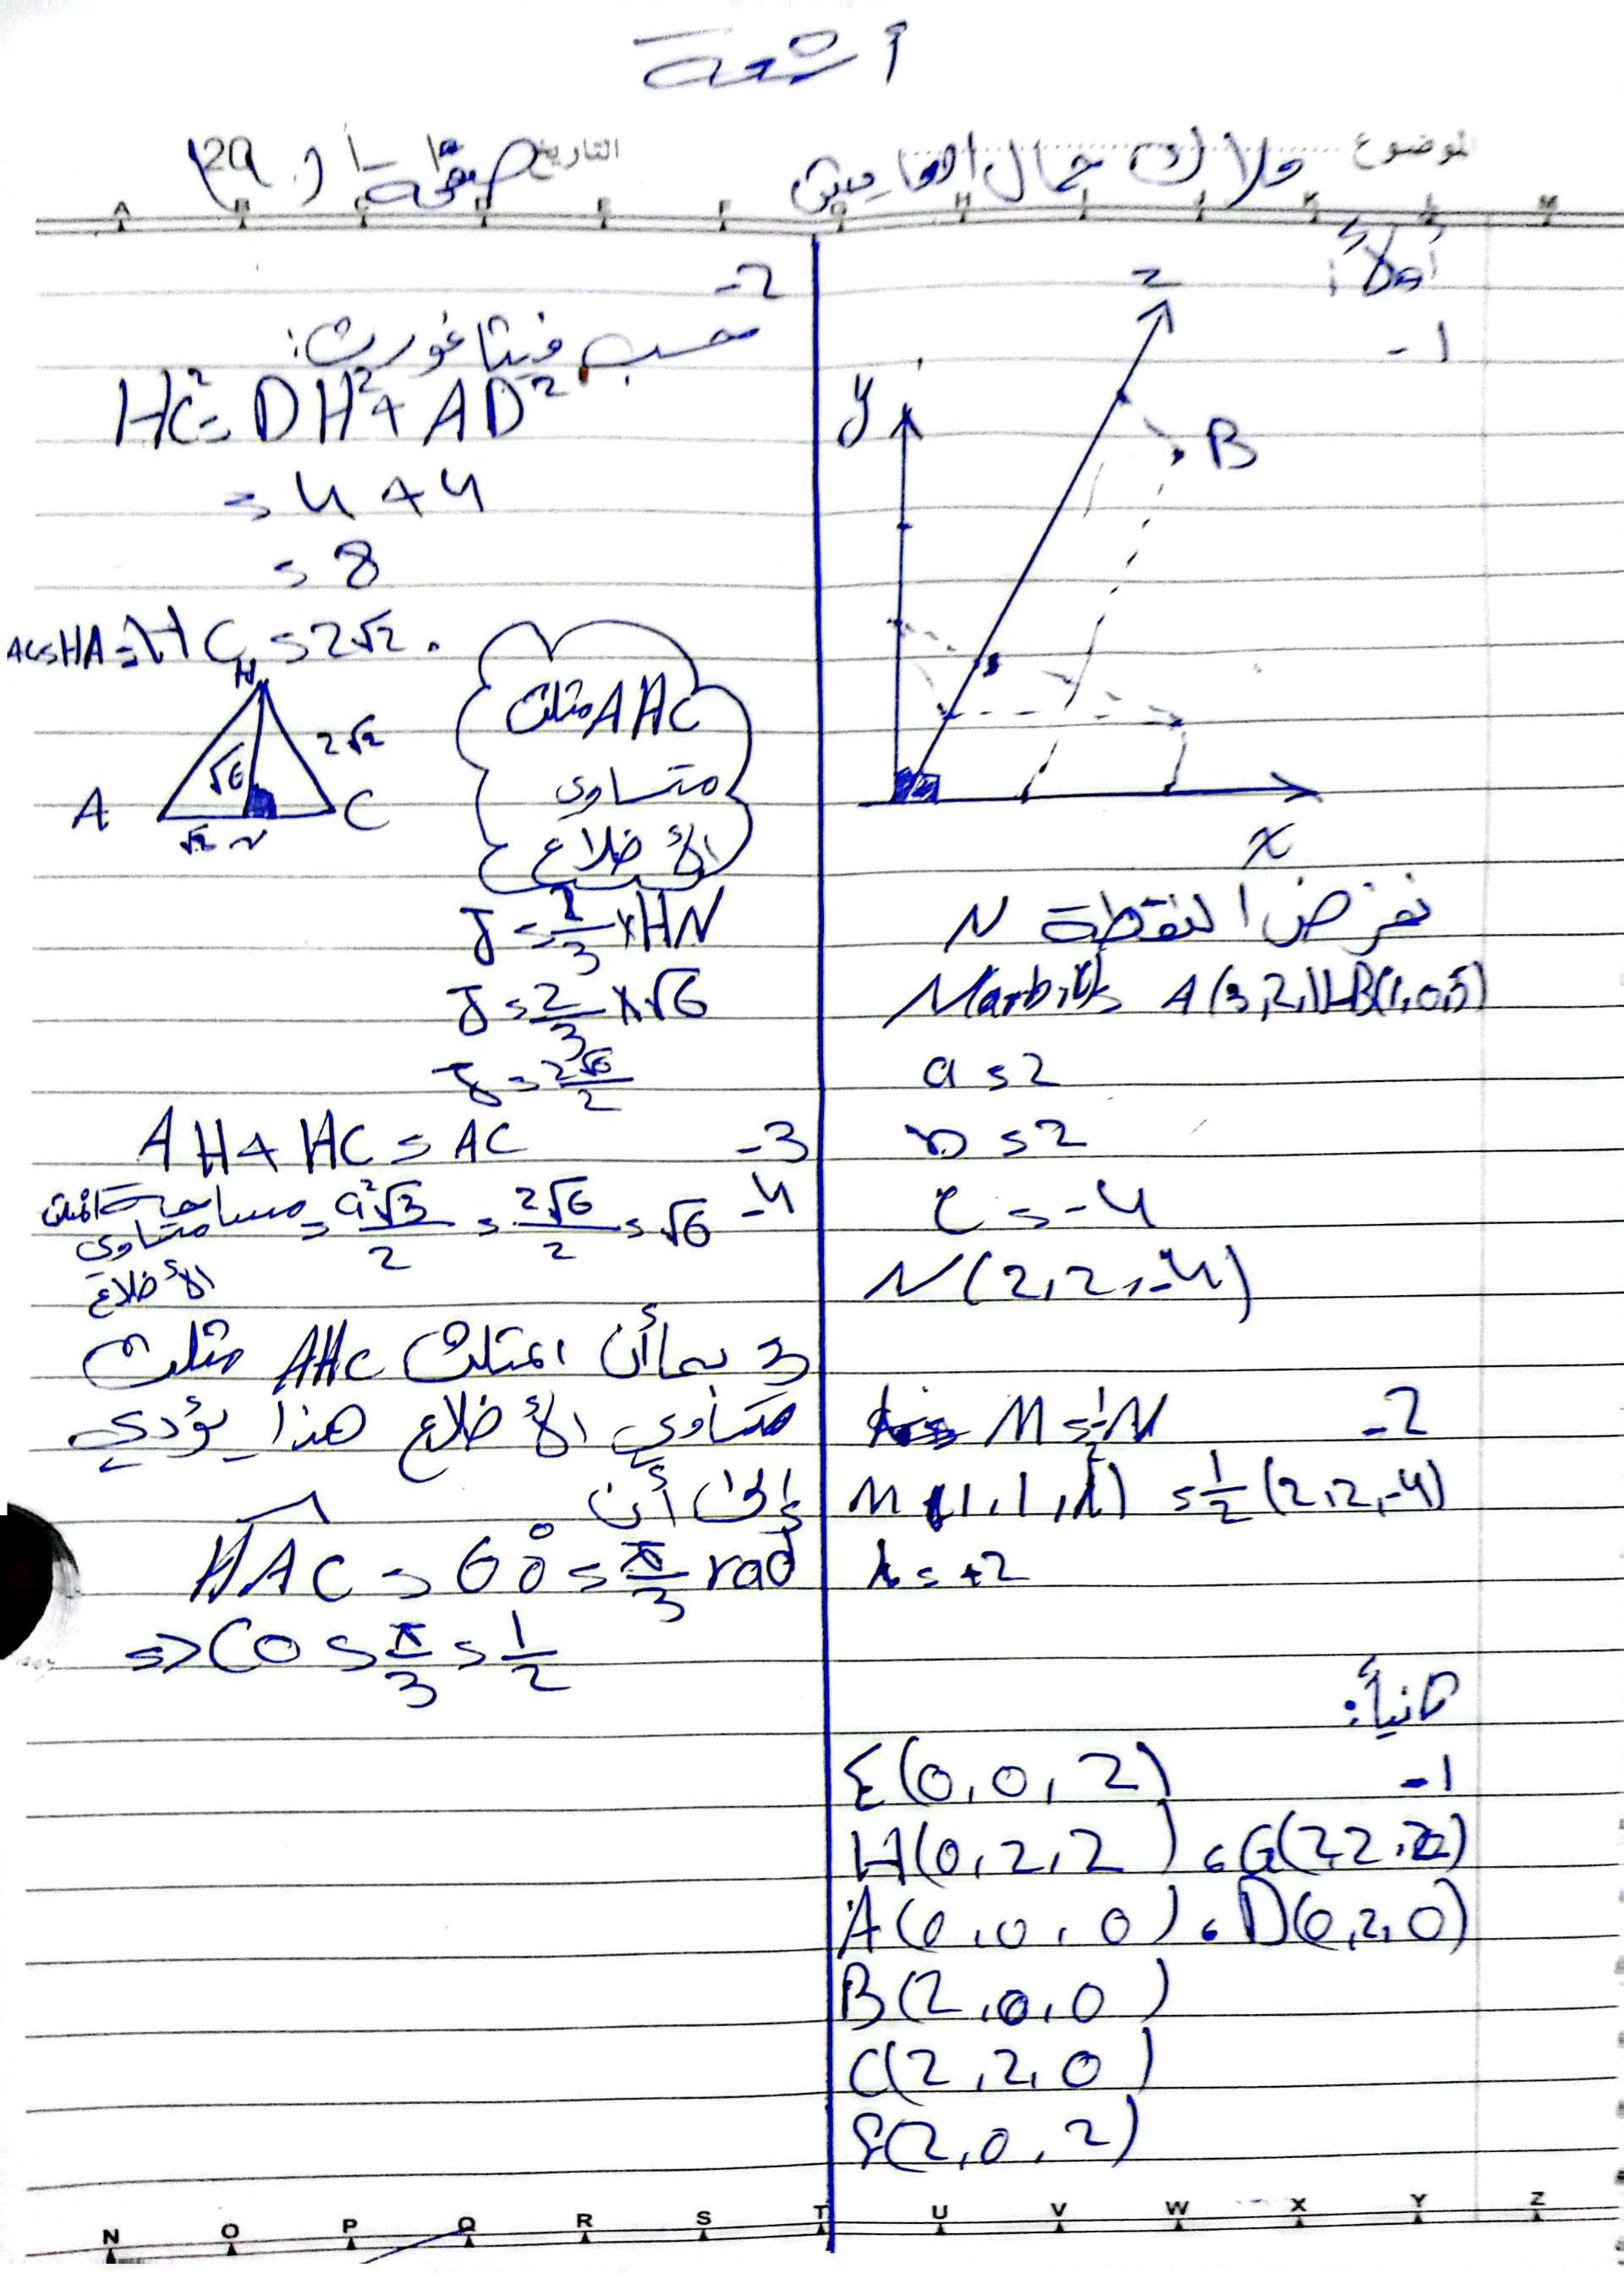 أشعة
الموضوع ملاك جمال
التاريخ صفحة (29)
A B C D E F G H I J K L M
أولاً:
1-
z
y
B
x
نفرض النقطة N
A(3,2,1) B(1,0,5)
a = 2
b = 2
c = -4
N(2,2,-4)
2-
M = ½N
M(1,1,λ) = ½(2,2,-4)
λ = +2
ثانياً:
1-
E(0,0,2)
H(0,2,2) ، G(2,2,2)
A(0,0,0) ، D(0,2,0)
B(2,0,0)
C(2,2,0)
F(2,0,2)
2-
حسب فيثاغورث:
HC² = DH² + AD²
= 4 + 4
= 8
AC = HA = HC = 2√2 .
H
√6
2√2
A
C
√2 N
مثلث AHC
متساوي
الأضلاع
J = 2/3 × HN
J = 2/3 × √6
J = 2√6/2
3- AH + HC = AC
4- مساحة المثلث متساوي الأضلاع = a²√3/2 = 2√6/2 = √6
3 بما أن المثلث AHC مثلث
متساوي الأضلاع هذا يؤدي
إلى أن
HAC = 60° = π/3 rad
⇒ Cos π/3 = 1/2
N O P Q R S T U V W X Y Z